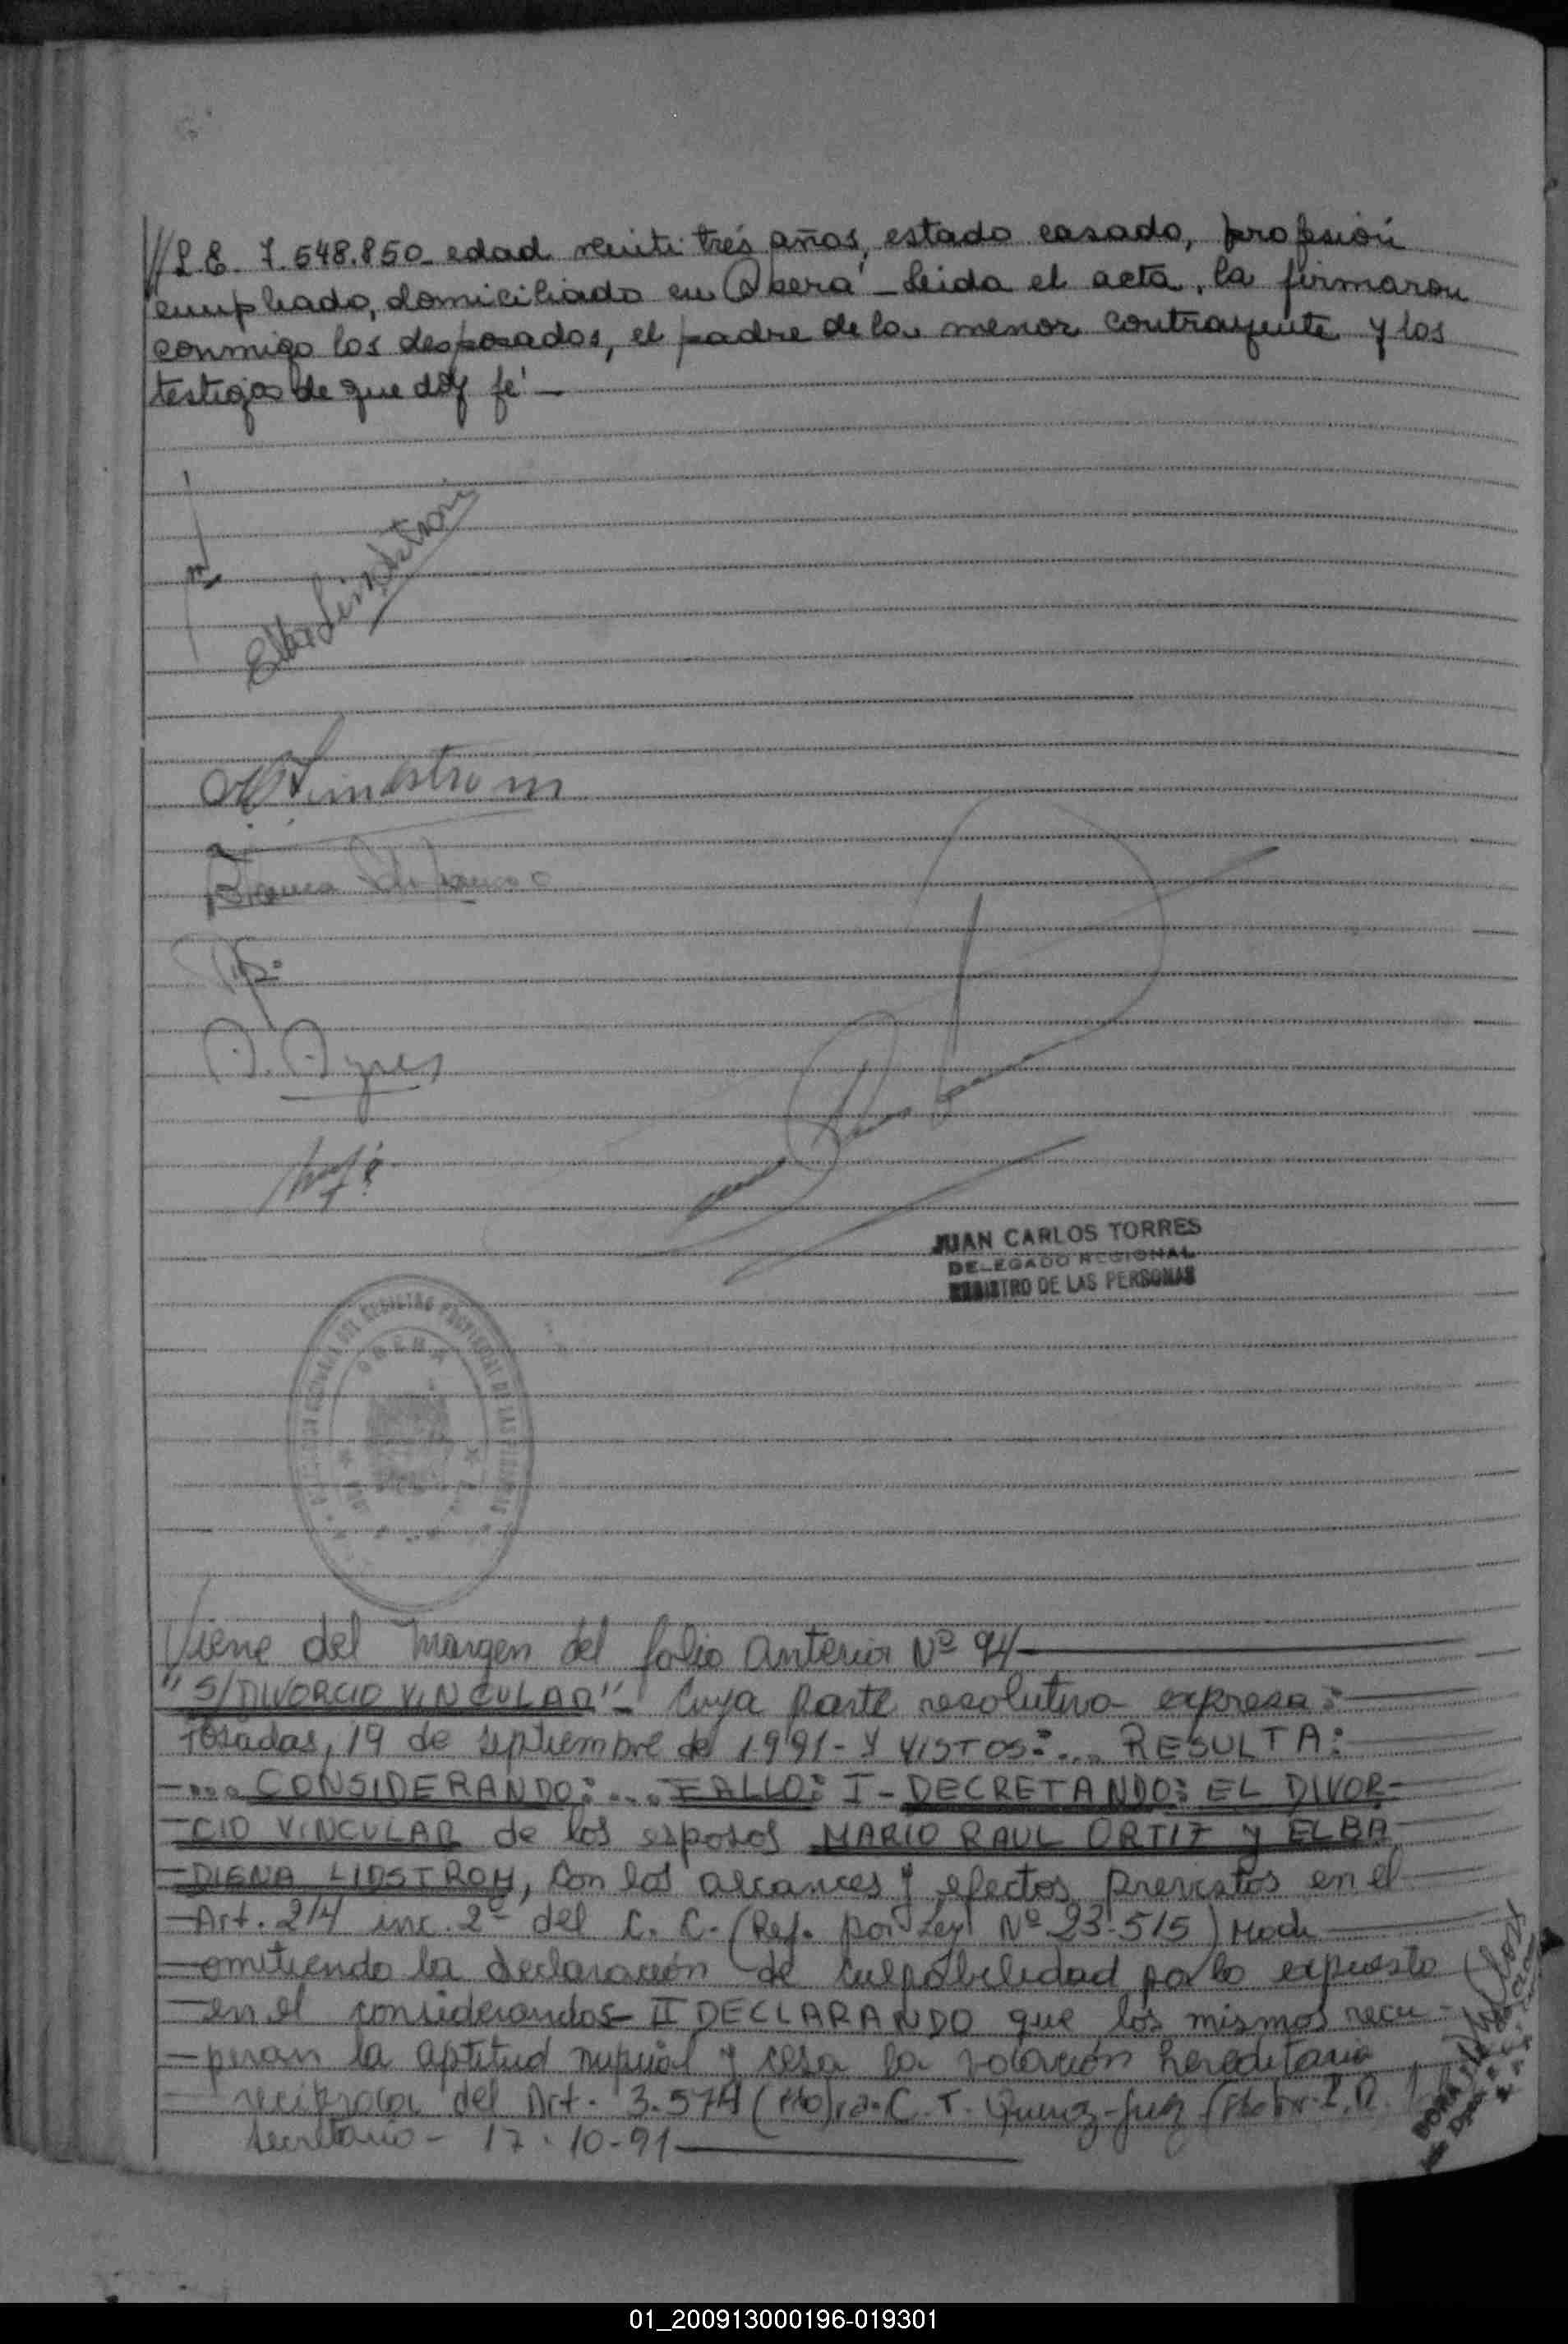 //L E. 7.548.850 - edad veinte tres años, estado casado, profesión
empleado, domiciliado en Oberá - Leida el acta, la firmaron
conmigo los desposados, el padre de la menor contrayente y los
testigos de que doy fé -
Elba Lindstrom
Lindstrom
JUAN CARLOS TORRES
DELEGADO REGIONAL
REGISTRO DE LAS PERSONAS
REGISTRO PROVINCIAL DE LAS PERSONAS
OBERA
Viene del margen del folio anterior Nº 94
"S/DIVORCIO VINCULAR" - Cuya parte resolutiva expresa:
Posadas, 19 de septiembre de 1991 - Y VISTOS:... RESULTA:
... CONSIDERANDO:... FALLO: I - DECRETANDO: EL DIVOR-
CIO VINCULAR de los esposos MARIO RAUL ORTIZ y ELBA
DIGNA LIDSTROM, con los alcances y efectos previstos en el
Art. 214 inc. 2º del C. C. (Ref. por Ley Nº 23.515) Modi
omitiendo la declaración de culpabilidad por lo expuesto
en el considerandos - II DECLARANDO que los mismos recu-
peran la aptitud nupcial y cesa la vocación hereditaria
reciproca del Art. 3.574 C. T. Quiroz - Juez
secretario - 17-10-91